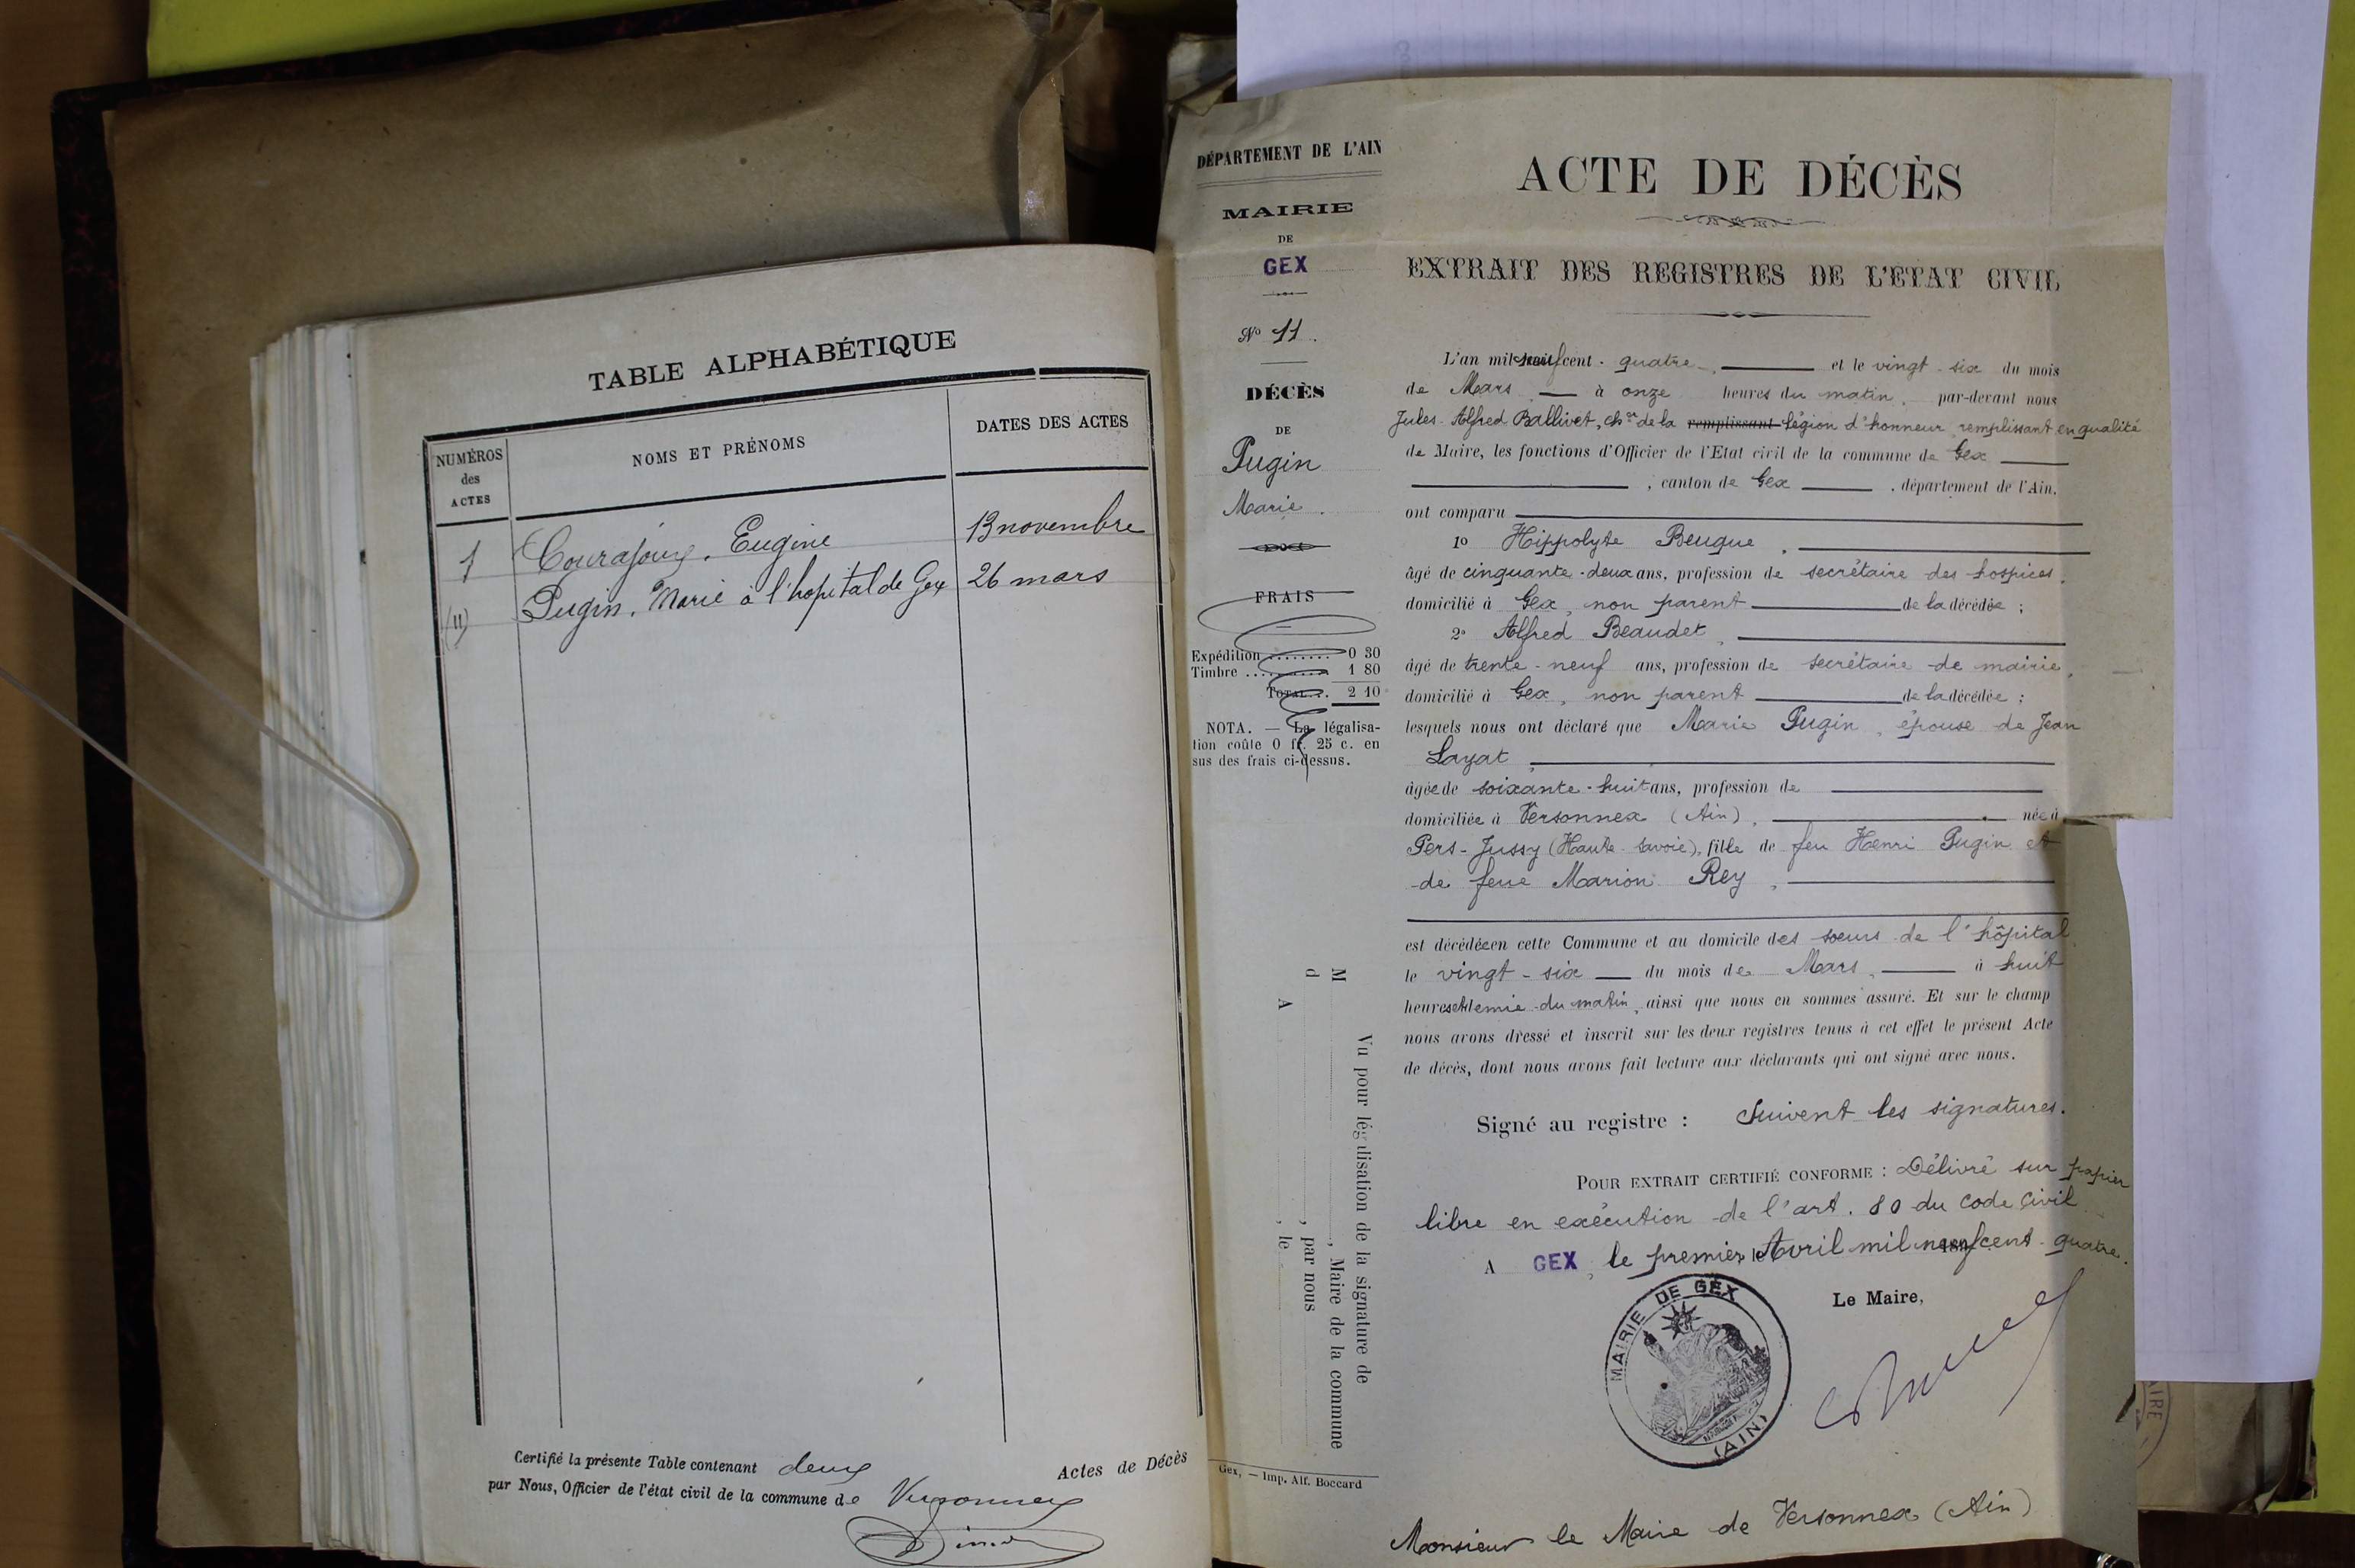 TABLE ALPHABÉTIQUE
NUMÉROS
des
ACTES
NOMS ET PRÉNOMS
DATES DES ACTES
1 Eugène 13 novembre
(11) Pugin, Marie à l'hopital de Gex 26 mars
Certifié la présente Table contenant deux Actes de Décès
par Nous, Officier de l'état civil de la commune de Versonnex
DÉPARTEMENT DE L'AIN
MAIRIE
DE
GEX
No 11.
DÉCÈS
DE
Pugin
Marie.
FRAIS
Expédition ........ 0 30
Timbre .......... 1 80
TOTAL... 2 10
NOTA. — La légalisa-
tion coûte 0 fr. 25 c. en
sus des frais ci-dessus.
Vu pour légalisation de la signature de
M , Maire de la commune
d , par nous
A , le
Gex, — Imp. Alf. Boccard
ACTE DE DÉCÈS
EXTRAIT DES REGISTRES DE L'ETAT CIVIL
L'an mil neuf cent-quatre, et le vingt-six du mois
de Mars, à onze heures du matin, par-devant nous
Jules-Alfred Ballivet, cher de la remplissant légion d'honneur, remplissant en qualité
de Maire, les fonctions d'Officier de l'Etat civil de la commune de Gex
, canton de Gex , département de l'Ain.
ont comparu
1o Hippolyte Beugue,
âgé de cinquante-deux ans, profession de secrétaire des hospices,
domicilié à Gex, non parent de la décédée ;
2o Alfred Beaudet,
âgé de trente-neuf ans, profession de secrétaire de mairie,
domicilié à Gex, non parent de la décédée ;
lesquels nous ont déclaré que Marie Pugin, épouse de Jean
Layat,
âgée de soixante-huit ans, profession de
domiciliée à Versonnex (Ain), née à
Pers-Jussy (Haute-Savoie), fille de feu Henri Pugin et
de feue Marion Rey,
est décédée en cette Commune et au domicile des sœurs de l'hôpital
le vingt-six du mois de Mars, à huit
heures et demie du matin, ainsi que nous en sommes assuré. Et sur le champ
nous avons dressé et inscrit sur les deux registres tenus à cet effet le présent Acte
de décès, dont nous avons fait lecture aux déclarants qui ont signé avec nous.
Signé au registre : Suivent les signatures.
POUR EXTRAIT CERTIFIÉ CONFORME : Délivré sur papier
libre en exécution de l'art. 80 du Code Civil
A GEX, le premier Avril mil neuf cent-quatre.
Le Maire,
MAIRIE DE GEX
(AIN)
Monsieur le Maire de Versonnex (Ain)